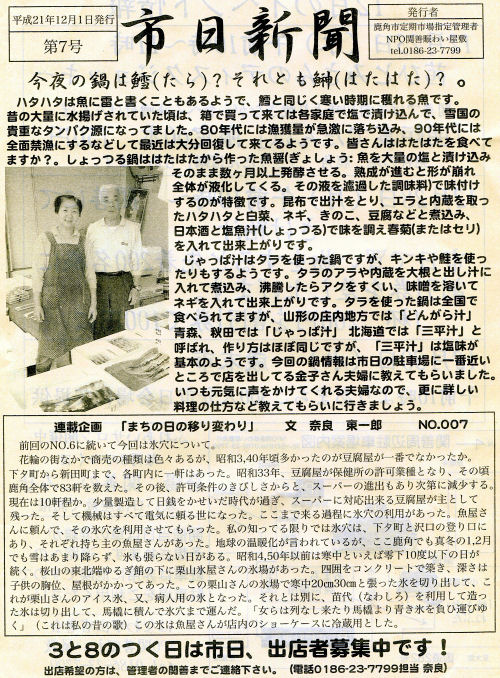 平成21年12月1日発行
第7号
市日新聞
発行者
鹿角市定期市場指定管理者
NPO関善賑わい屋敷
tel.0186-23-7799
今夜の鍋は鱈(たら)?それとも鰰(はたはた)?。
ハタハタは魚に雷と書くこともあるようで、鱈と同じく寒い時期に穫れる魚です。
昔の大量に水揚げされていた頃は、箱で買って来ては各家庭で塩で漬け込んで、雪国の
貴重なタンパク源になってました。80年代には漁獲量が急激に落ち込み、90年代には
全面禁漁にするなどして最近は大分回復して来てるようです。皆さんははたはたを食べて
ますか?。しょっつる鍋ははたはたから作った魚醤(ぎょしょう:魚を大量の塩と漬け込み
そのまま数ヶ月以上発酵させる。熟成が進むと形が崩れ
全体が液化してくる。その液を濾過した調味料)で味付け
するのが特徴です。昆布で出汁をとり、エラと内蔵を取っ
たハタハタと白菜、ネギ、きのこ、豆腐などと煮込み、
日本酒と塩魚汁(しょっつる)で味を調え春菊(またはセリ)
を入れて出来上がりです。
じゃっぱ汁はタラを使った鍋ですが、キンキや鮭を使っ
たりもするようです。タラのアラや内蔵を大根と出し汁に
入れて煮込み、沸騰したらアクをすくい、味噌を溶いて
ネギを入れて出来上がりです。タラを使った鍋は全国で
食べられてますが、山形の庄内地方では「どんがら汁」
青森、秋田では「じゃっぱ汁」 北海道では「三平汁」と
呼ばれ、作り方はほぼ同じですが、「三平汁」は塩味が
基本のようです。今回の鍋情報は市日の駐車場に一番近い
ところで店を出してる金子さん夫婦に教えてもらいました。
いつも元気に声をかけてくれる夫婦なので、更に詳しい
料理の仕方など教えてもらいに行きましょう。
連載企画 「まちの日の移り変わり」 文 奈良 東一郎 NO.007
前回のNO.6に続いて今回は氷穴について。
花輪の街なかで商売の種類は色々あるが、昭和3,40年頃多かったのが豆腐屋が一番でなかったか。
下タ町から新田町まで、各町内に一軒はあった。昭和33年、豆腐屋が保健所の許可業種となり、その頃
鹿角全体で83軒を数えた。その後、許可条件のきびしさからと、スーパーの進出もあり次第に減少する。
現在は10軒程か。少量製造して日銭をかせいだ時代が過ぎ、スーパーに対応出来る豆腐屋が主として
残った。そして機械はすべて電気に頼る世になった。ここまで来る過程に氷穴の利用があった。魚屋さ
んに頼んで、その氷穴を利用させてもらった。私の知ってる限りでは氷穴は、下タ町と沢口の登り口に
あり、それぞれ持ち主の魚屋さんがあった。地球の温暖化が言われているが、ここ鹿角でも真冬の1,2月
でも雪はあまり降らず、氷も張らない日がある。昭和4,50年以前は寒中といえば零下10度以下の日が
続く。桜山の東北端ゆるぎ館の下に栗山氷屋さんの氷場があった。四囲をコンクリートで築き、深さは
子供の胸位、屋根がかかってあった。この栗山さんの氷場で寒中20㎝30㎝と張った氷を切り出して、こ
れが栗山さんのアイス氷、又、病人用の氷となった。それとは別に、苗代(なわしろ)を利用して造っ
た氷は切り出して、馬橇に積んで氷穴まで運んだ。「女らは列なし来たり馬橇より青き氷を負ひ運びゆ
く」(これは私の昔の歌)この氷は魚屋さんが店内のショーケースに冷蔵用とした。
3と8のつく日は市日、出店者募集中です!
出店希望の方は、管理者の関善までご連絡下さい。(電話0186-23-7799担当 奈良)